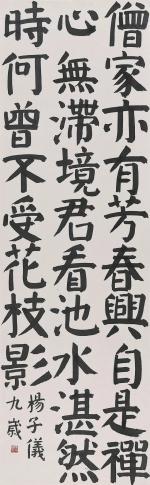 僧家亦有芳春興自是禪
心無滯境君看池水湛然
時何曾不受花枝影
楊子儀
九歲